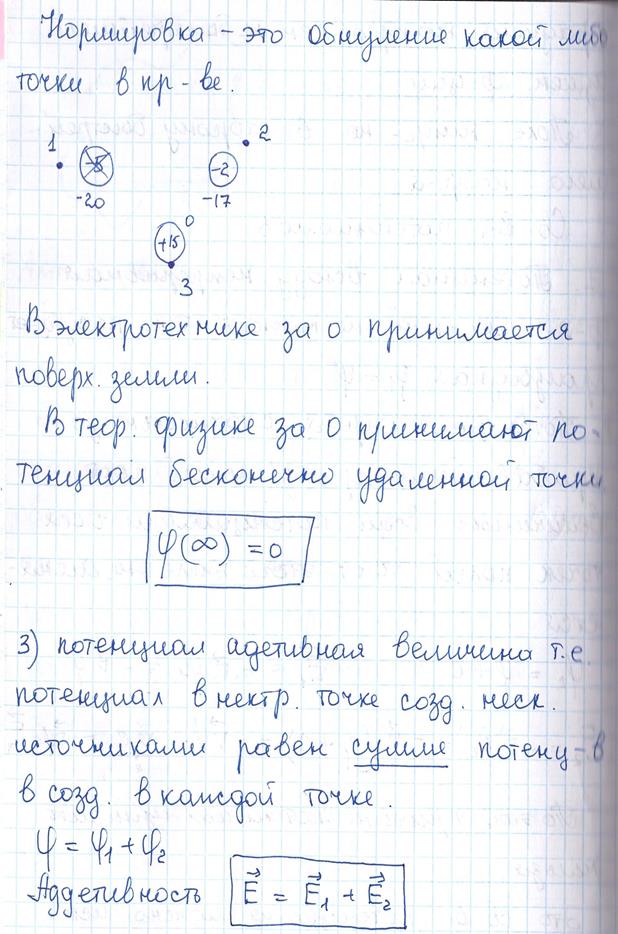 Нормировка – это обнуление какой либо
точки в пр-ве.
1 -5 -2 2
-20 -17
+15 0
3
В электротехнике за 0 принимается
поверх. земли.
В теор. физике за 0 принимают по-
тенциал бесконечно удаленной точки
φ(∞) = 0
3) потенциал адетивная величина т.е.
потенциал в нектр. точке созд. неск.
источниками равен сумме потенц-в
в созд. в каждой точке.
φ = φ₁ + φ₂
Аддетивность E⃗ = E⃗₁ + E⃗₂